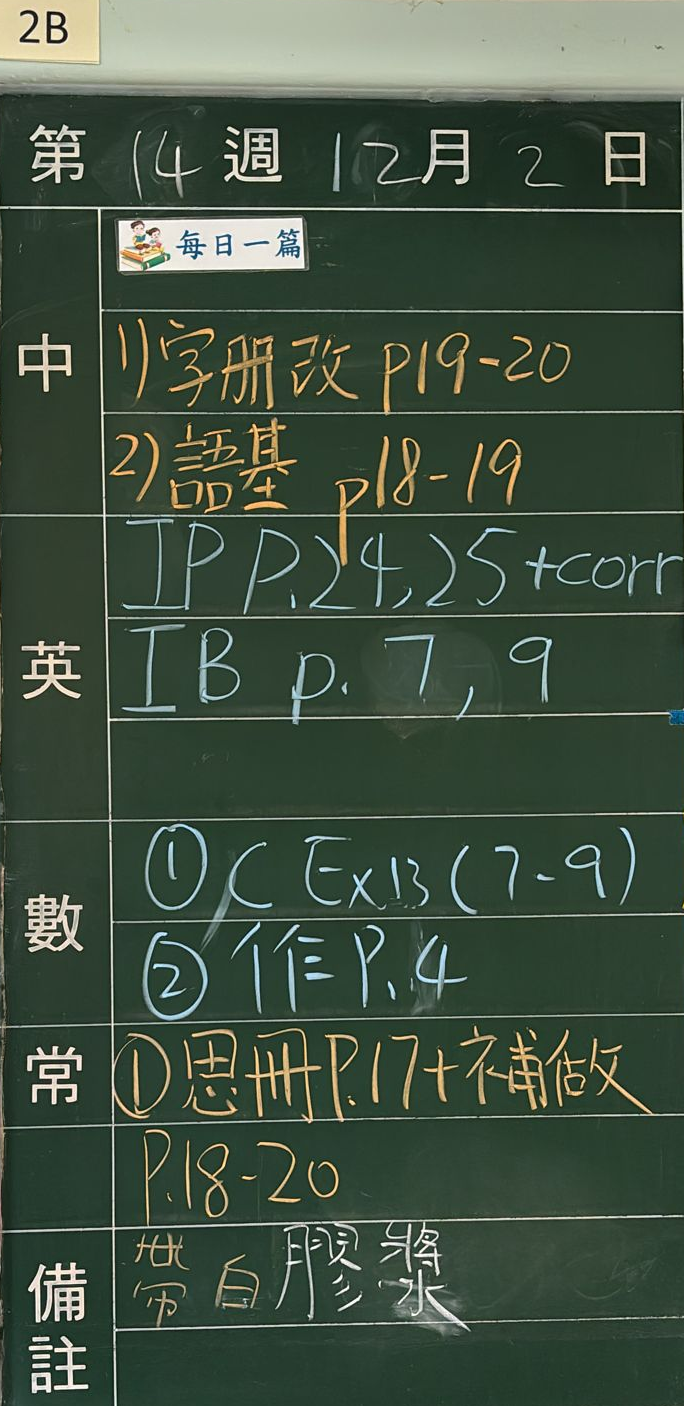 2B
第 14 週 12 月 2 日
每日一篇
中
1) 字册改 p19-20
2) 語基 p18-19
英
IP P.24,25+corr
IB p. 7, 9
數
① C Ex13 (7-9)
② 作 P.4
常
① 思冊 P.17+補做
P.18-20
備註
帶白膠漿